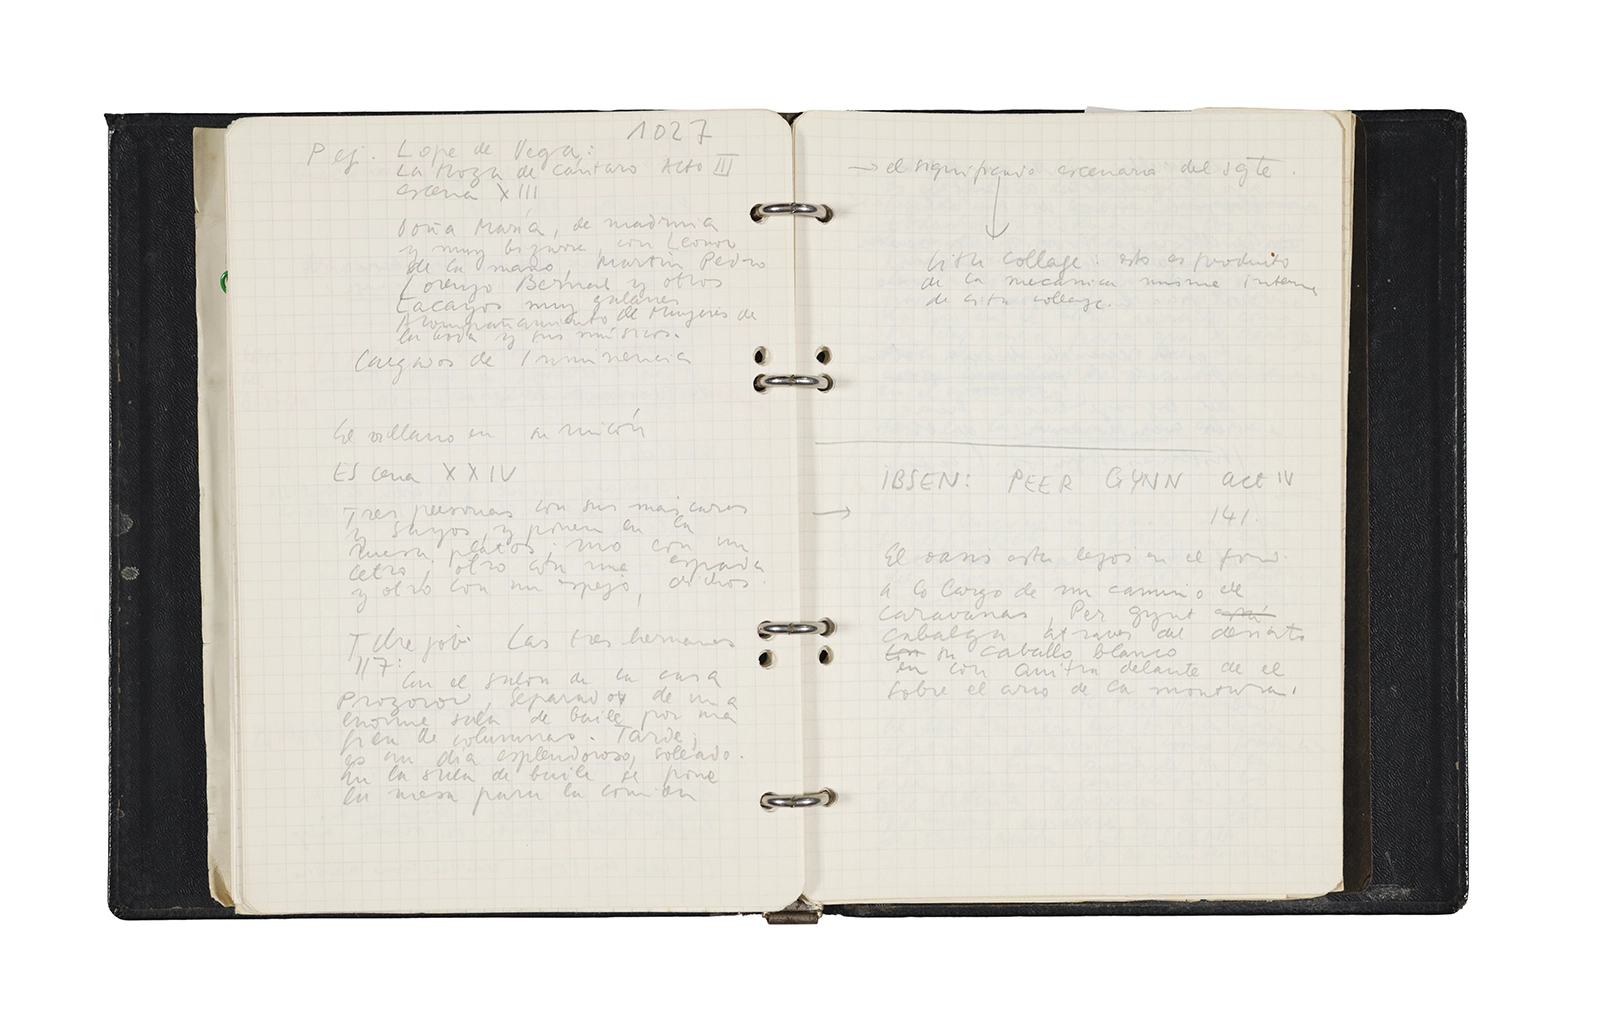 1027
P ej. Lope de Vega:
La Moza de Cántaro Acto III
escena XIII
Doña María, de madrina
y muy bizarra, con Leonor
de la mano, Martin Pedro
Lorenzo Bernal y otros
Lacayos muy galanes
Acompañamiento de Mujeres de
la boda y sus músicos.
Cargados de Inminencia
El villano en su rincón
Escena XXIV
Tres personas con sus mascaras
y sayos, y ponen en la
mesa platos, uno con un
cetro, otro con una espada
y otro con un espejo, dichos.
Tchejob Las tres hermanas
117:
En el salon de la casa
Prozorov, separado de una
enorme sala de baile por una
fila de columnas. Tarde;
es un día esplendoroso, soleado.
En la sala de baile se pone
la mesa para la comida
→ el significado escenario del sgte.
collage: esto es producto
de la mecanica misma interna
de este collage.
IBSEN: PEER GYNN act IV
→ 141.
El oasis esta lejos en el fondo.
a lo largo de un camino de
caravanas, Per gynt está
cabalga a traves del desierto
con su caballo blanco
con Anitra delante de el
sobre el arzo de la montura.